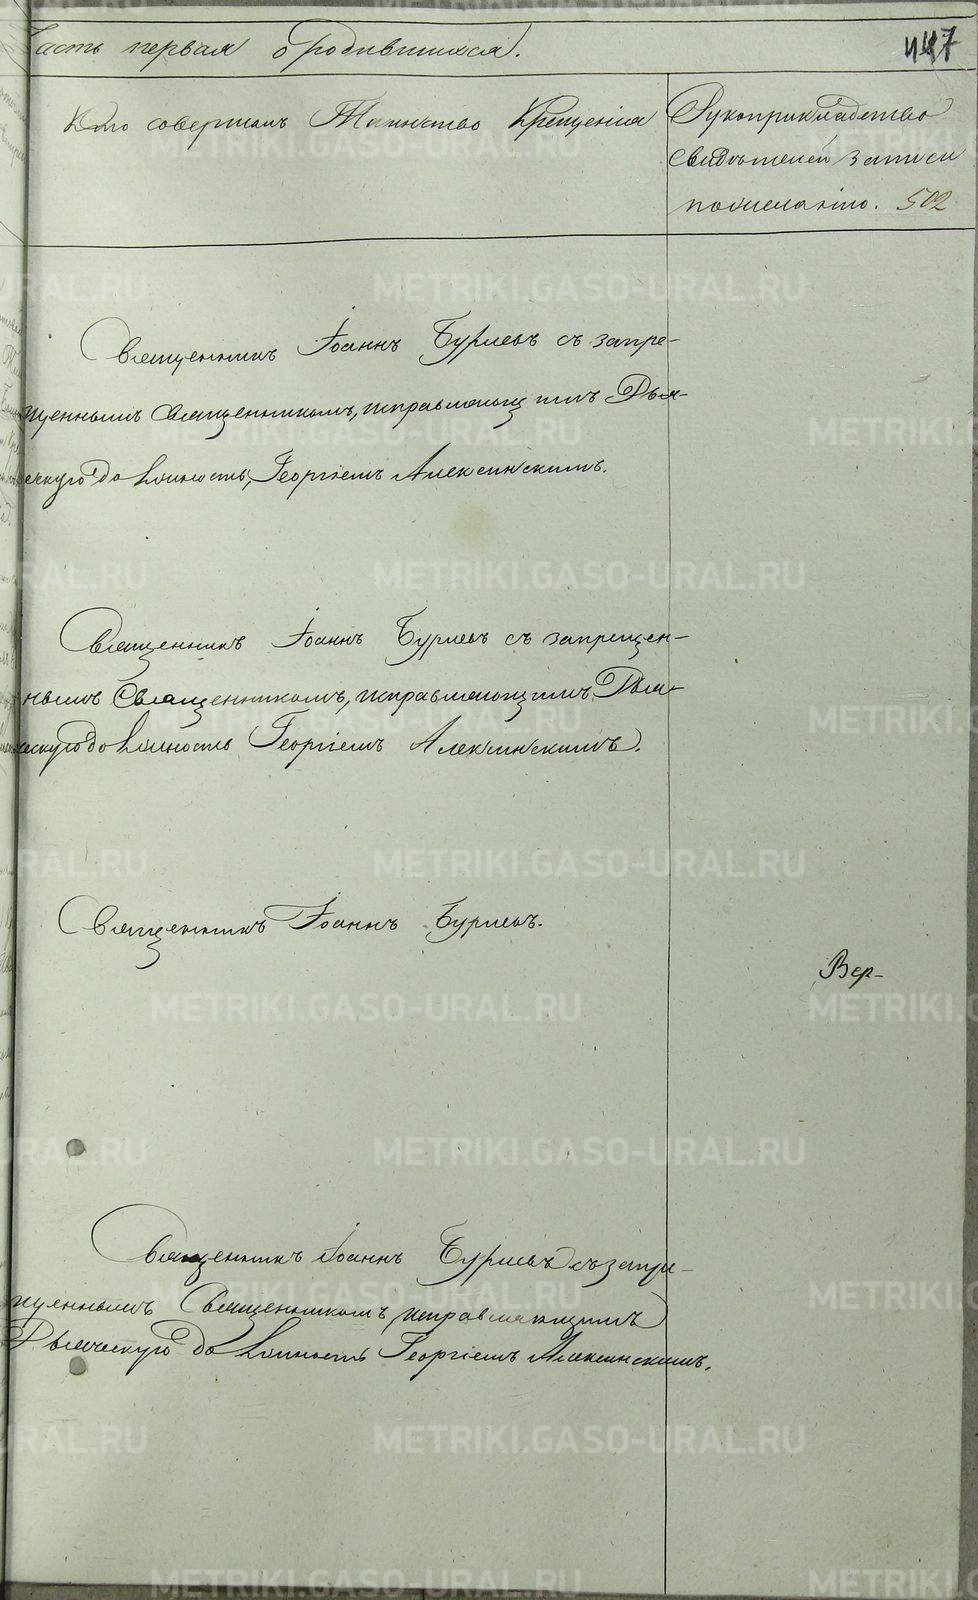 Часть первая о родившихся. 447
Кто совершалъ Таинство Крещенія
Рукоприкладство
свидѣтелей записи
по желанію. 502
Священникъ Іоаннъ Бурлевъ съ запре-
щеннымъ Священникомъ, исправляющимъ Дья-
ческую должность, Георгіемъ Алексинскимъ.
Священникъ Іоаннъ Бурлевъ съ запрещен-
нымъ Священникомъ, исправляющимъ Дья-
ческую должность Георгіемъ Алексинскимъ.
Священникъ Іоаннъ Бурлевъ.
Вер-
Священникъ Іоаннъ Бурлевъ съ запре-
щеннымъ Священникомъ, исправляющимъ
Дьяческую должность Георгіемъ Алексинскимъ.
METRIKI.GASO-URAL.RU